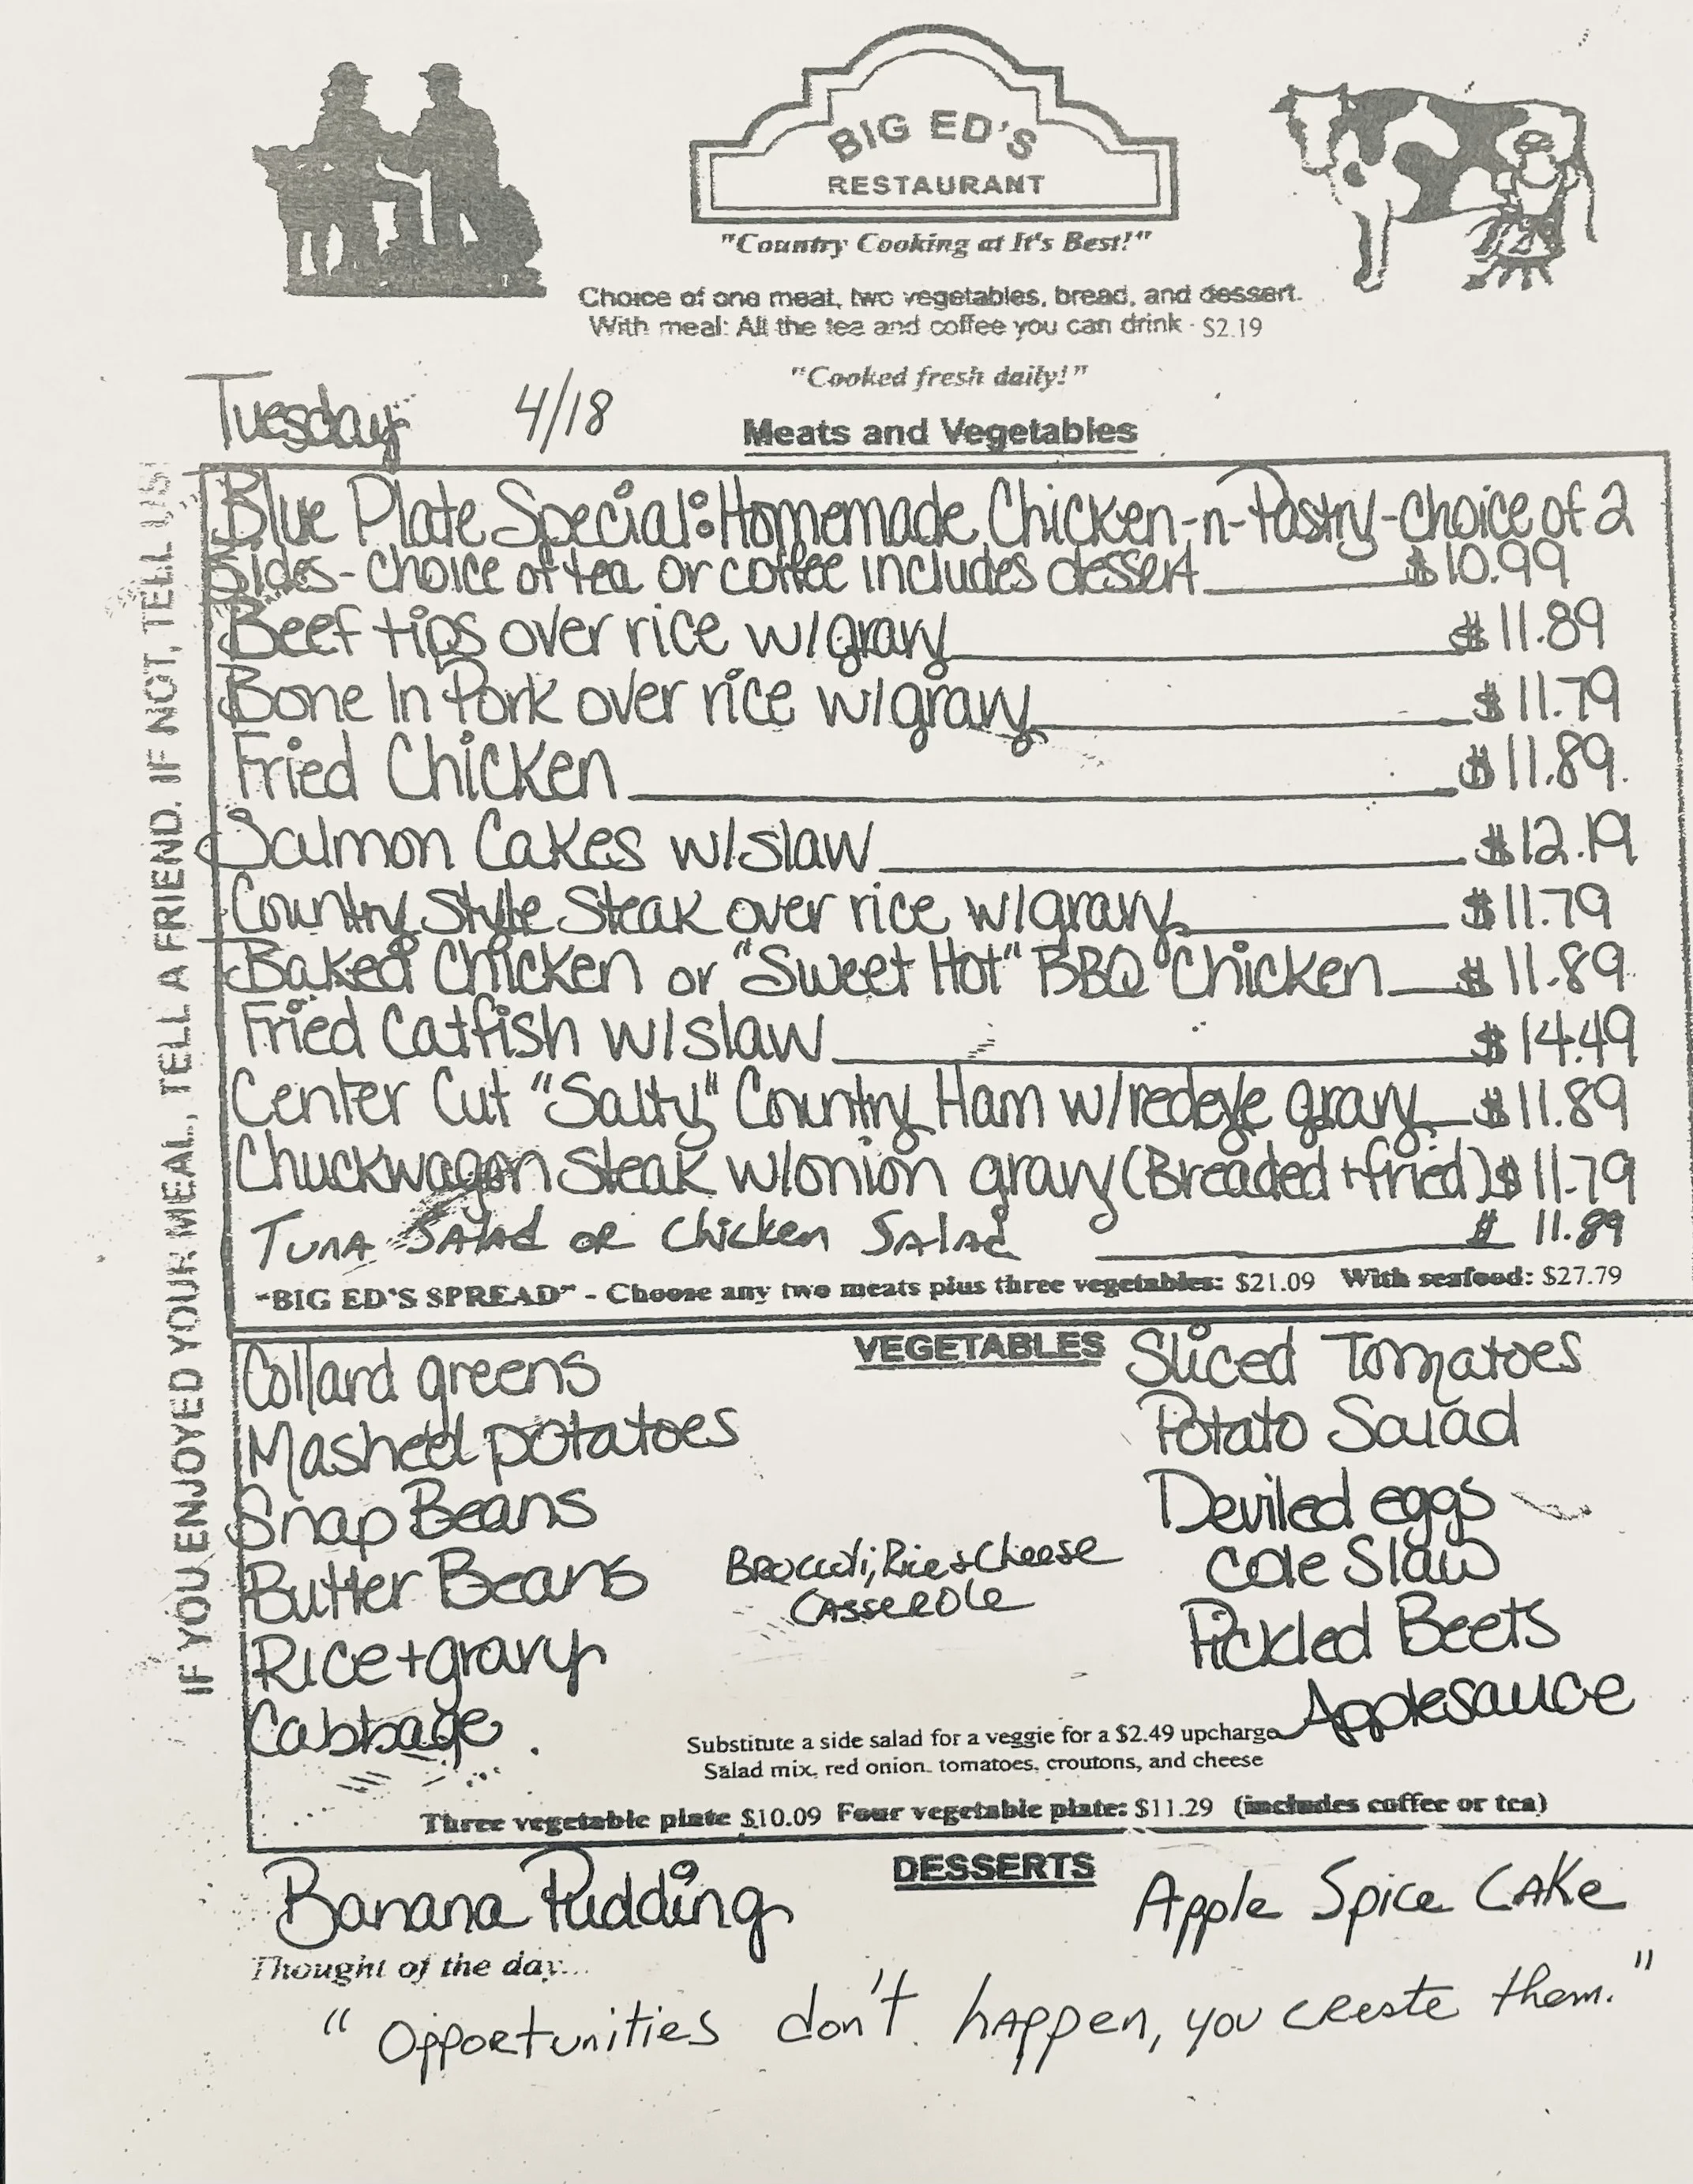 BIG ED'S
RESTAURANT
"Country Cooking at It's Best!"
Choice of one meat, two vegetables, bread, and dessert.
With meal: All the tea and coffee you can drink - $2.19
"Cooked fresh daily!"
Tuesday 4/18
Meats and Vegetables
IF YOU ENJOYED YOUR MEAL, TELL A FRIEND. IF NOT, TELL US!
Blue Plate Special: Homemade Chicken-n-Pastry-choice of 2
Sides- choice of tea or coffee includes dessert $10.99
Beef tips over rice w/gravy $11.89
Bone In Pork over rice w/gravy $11.79
Fried Chicken $11.89
Salmon Cakes w/slaw $12.19
Country Style Steak over rice w/gravy $11.79
Baked Chicken or "Sweet Hot" BBQ Chicken $11.89
Fried Catfish w/slaw $14.49
Center Cut "Salty" Country Ham w/redeye gravy $11.89
Chuckwagon Steak w/onion gravy (Breaded + fried) $11.79
Tuna Salad or Chicken Salad $ 11.89
"BIG ED'S SPREAD" - Choose any two meats plus three vegetables: $21.09 With seafood: $27.79
VEGETABLES
Collard greens
Mashed potatoes
Snap Beans
Butter Beans
Rice + gravy
Cabbage
Broccoli, Rice + Cheese
Casserole
Sliced Tomatoes
Potato Salad
Deviled eggs
Cole Slaw
Pickled Beets
Applesauce
Substitute a side salad for a veggie for a $2.49 upcharge
Salad mix, red onion, tomatoes, croutons, and cheese
Three vegetable plate $10.09 Four vegetable plate: $11.29 (includes coffee or tea)
DESSERTS
Banana Pudding
Apple Spice Cake
Thought of the day...
"Opportunities don't happen, you create them."